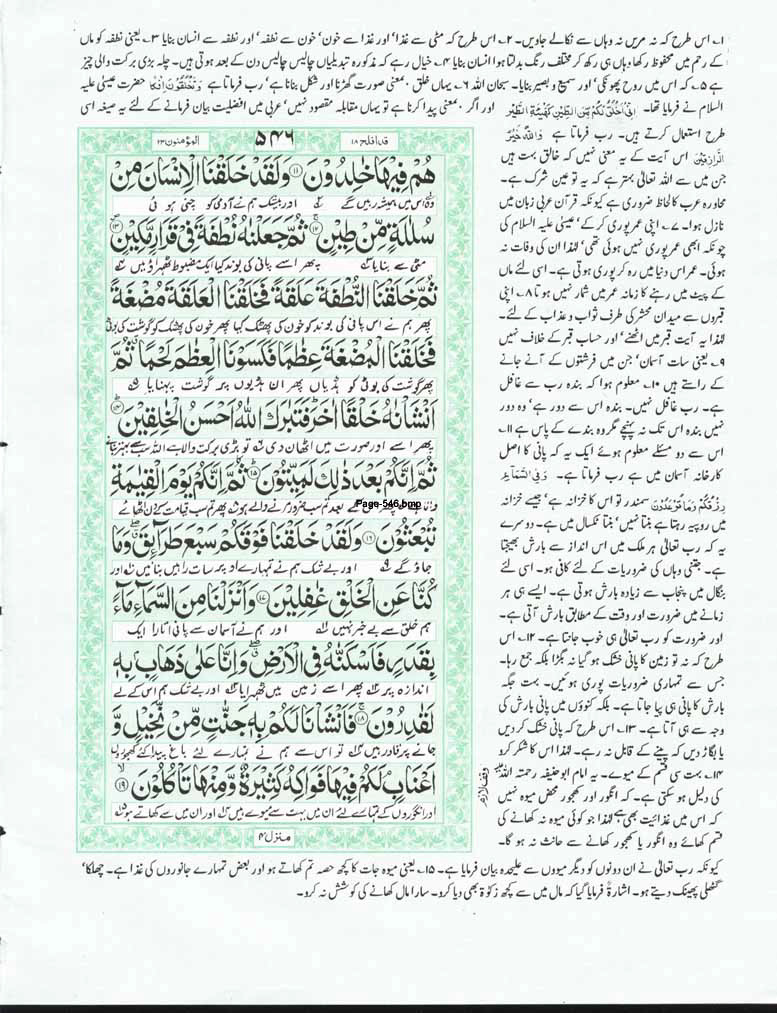 ۱۔ اس طرح کہ نہ مریں نہ وہاں سے نکالے جاویں۔ ۲۔ اس طرح کہ مٹی سے غذا' اور غذا سے خون' خون سے نطفہ' اور نطفہ سے انسان بنایا ۳۔ یعنی نطفہ کو ماں
کے رحم میں محفوظ رکھا وہاں ہی رکھ کر مختلف رنگ بدلتا ہوا انسان بنایا ۴۔ خیال رہے کہ مذکورہ تبدیلیاں چالیس چالیس دن کے بعد ہوتی ہیں۔ چلہ بڑی برکت والی چیز
ہے ۵۔ کہ اس میں روح پھونکی' اور سمیع و بصیر بنایا۔ سبحان اللہ ۶۔ یہاں خلق' بمعنی صورت گھڑنا اور شکل بنانا ہے' رب فرماتا ہے وَتَخْلُقُوْنَ اِفْكًا حضرت عیسیٰ علیہ
السلام نے فرمایا تھا۔ اِنِّیْ اَخْلُقُ لَكُمْ مِّنَ الطِّیْنِ كَهَیْئَةِ الطَّیْرِ اور اگر' بمعنی پیدا کرنا ہے تو یہاں مقابلہ مقصود نہیں' عربی میں افضلیت بیان فرمانے کے لئے یہ صیغہ اسی
طرح استعمال کرتے ہیں۔ رب فرماتا ہے وَاللّٰهُ خَیْرُ
الرّٰازِقِیْنَ اس آیت کے یہ معنی نہیں کہ خالق بہت ہیں
جن میں سے اللہ تعالیٰ بہتر ہے کہ یہ تو عین شرک ہے۔
محاورہ عرب کا لحاظ ضروری ہے کیونکہ قرآن عربی زبان میں
نازل ہوا۔ ۷۔ اپنی عمر پوری کر کے' عیسیٰ علیہ السلام کی
چونکہ ابھی عمر پوری نہیں ہوئی تھی' لہٰذا ان کی وفات نہ
ہوئی۔ عمر اس دنیا میں رہ کر پوری ہوتی ہے۔ اسی لئے ماں
کے پیٹ میں رہنے کا زمانہ عمر میں شمار نہیں ہوتا ۸۔ اپنی
قبروں سے میدان محشر کی طرف ثواب و عذاب کے لئے۔
لہٰذا یہ آیت قبر میں اٹھنے' اور حساب قبر کے خلاف نہیں
۹۔ یعنی سات آسمان' جن میں فرشتوں کے آنے جانے
کے راستے ہیں ۱۰۔ معلوم ہوا کہ بندہ رب سے غافل
ہے۔ رب غافل نہیں۔ بندہ اس سے دور ہے' وہ دور
نہیں بندہ اس تک نہ پہنچے مگر وہ بندے کے پاس ہے ۱۱۔
اس سے دو مسئلے معلوم ہوئے ایک یہ کہ پانی کا اصل
کارخانہ آسمان میں ہے رب فرماتا ہے۔ وَفِی السَّمَآءِ
رِزْقُكُمْ وَمَا تُوْعَدُوْنَ سمندر تو اس کا خزانہ ہے' جیسے خزانہ
میں روپیہ رہتا ہے بنتا نہیں' بنتا ٹکسال میں ہے۔ دوسرے
یہ کہ رب تعالیٰ ہر ملک میں اس انداز سے بارش بھیجتا
ہے۔ جتنی وہاں کی ضروریات کے لئے کافی ہو۔ اسی لئے
بنگال میں پنجاب سے زیادہ بارش ہوتی ہے۔ ایسے ہی ہر
زمانے میں ضرورت اور وقت کے مطابق بارش آتی ہے۔
اور ضرورت کو رب تعالیٰ ہی خوب جانتا ہے۔ ۱۲۔ اس
طرح کہ نہ تو زمین کا پانی خشک ہو گیا نہ بگڑا بلکہ جمع رہا۔
جس سے تمہاری ضروریات پوری ہوئیں۔ بہت جگہ
بارش کا پانی ہی پیا جاتا ہے۔ بلکہ کنوؤں میں پانی بارش کی
وجہ سے ہی آتا ہے۔ ۱۳۔ اس طرح کہ پانی خشک کر دیں
یا بگاڑ دیں کہ پینے کے قابل نہ رہے۔ لہٰذا اس کا شکر کرو
۱۴۔ بہت سی قسم کے میوے۔ یہ امام ابو حنیفہ رحمتہ اللہ علیہ
کی دلیل ہو سکتی ہے۔ کہ انگور اور کھجور محض میوہ نہیں
کہ اس میں غذائیت بھی ہے لہٰذا جو کوئی میوہ نہ کھانے کی
قسم کھائے وہ انگور یا کھجور کھانے سے حانث نہ ہو گا۔
کیونکہ رب تعالیٰ نے ان دونوں کو دیگر میووں سے علیحدہ بیان فرمایا ہے۔ ۱۵۔ یعنی میوہ جات کا کچھ حصہ تم کھاتے ہو اور بعض تمہارے جانوروں کی غذا ہے۔ چھلکا'
گٹھلی پھینک دیتے ہو۔ اشارۃً فرمایا گیا کہ مال میں سے کچھ زکوٰۃ بھی دیا کرو۔ سارا مال کھانے کی کوشش نہ کرو۔
قد افلح ۱۸ ۵۴۶ المؤمنون ۲۳
هُمْ فِیْهَا خٰلِدُوْنَ ۝۱۱ وَلَقَدْ خَلَقْنَا الْاِنْسَانَ مِنْ
وہ اس میں ہمیشہ رہیں گے اور بیشک ہم نے آدمی کو چنی ہوئی
سُلٰلَةٍ مِّنْ طِیْنٍ ۝۱۲ ثُمَّ جَعَلْنٰهُ نُطْفَةً فِیْ قَرَارٍ مَّكِیْنٍ ۝۱۳
مٹی سے بنایا پھر اسے پانی کی بوند کیا ایک مضبوط ٹھہراؤ میں
ثُمَّ خَلَقْنَا النُّطْفَةَ عَلَقَةً فَخَلَقْنَا الْعَلَقَةَ مُضْغَةً
پھر ہم نے اس پانی کی بوند کو خون کی پھٹک کیا پھر خون کی پھٹک کو گوشت کی بوٹی
فَخَلَقْنَا الْمُضْغَةَ عِظٰمًا فَكَسَوْنَا الْعِظٰمَ لَحْمًا ثُمَّ
پھر گوشت کی بوٹی کو ہڈیاں پھر ان ہڈیوں پر گوشت پہنایا
اَنْشَاْنٰهُ خَلْقًا اٰخَرَ فَتَبٰرَكَ اللّٰهُ اَحْسَنُ الْخٰلِقِیْنَ ۝۱۴
پھر اسے اور صورت میں اٹھان دی تو بڑی برکت والا ہے اللہ سب سے بہتر بنانے
ثُمَّ اِنَّكُمْ بَعْدَ ذٰلِكَ لَمَیِّتُوْنَ ۝۱۵ ثُمَّ اِنَّكُمْ یَوْمَ الْقِیٰمَةِ
والا پھر اس کے بعد تم سب ضرور مرنے والے ہو پھر تم سب قیامت کے دن اٹھائے
Page-546.bmp
تُبْعَثُوْنَ ۝۱۶ وَلَقَدْ خَلَقْنَا فَوْقَكُمْ سَبْعَ طَرَآىِٕقَ وَمَا
جاؤ گے اور بے شک ہم نے تمہارے اوپر سات راہیں بنائیں اور
كُنَّا عَنِ الْخَلْقِ غٰفِلِیْنَ ۝۱۷ وَاَنْزَلْنَا مِنَ السَّمَآءِ مَآءً
ہم خلق سے بے خبر نہیں اور ہم نے آسمان سے پانی اتارا ایک
بِقَدَرٍ فَاَسْكَنّٰهُ فِی الْاَرْضِ وَاِنَّا عَلٰی ذَهَابٍۭ بِهٖ
اندازہ پر پھر اسے زمین میں ٹھہرایا اور بے شک ہم اس کے لے
لَقٰدِرُوْنَ ۝۱۸ فَاَنْشَاْنَا لَكُمْ بِهٖ جَنّٰتٍ مِّنْ نَّخِیْلٍ وَّ
جانے پر قادر ہیں تو اس سے ہم نے تمہارے لئے باغ پیدا کئے کھجوروں
اَعْنَابٍ لَكُمْ فِیْهَا فَوَاكِهُ كَثِیْرَةٌ وَّمِنْهَا تَاْكُلُوْنَ ۝۱۹
اور انگوروں کے تمہارے لئے ان میں بہت سے میوے ہیں اور ان میں سے کھاتے ہو
وقف لازم
منزل ۴